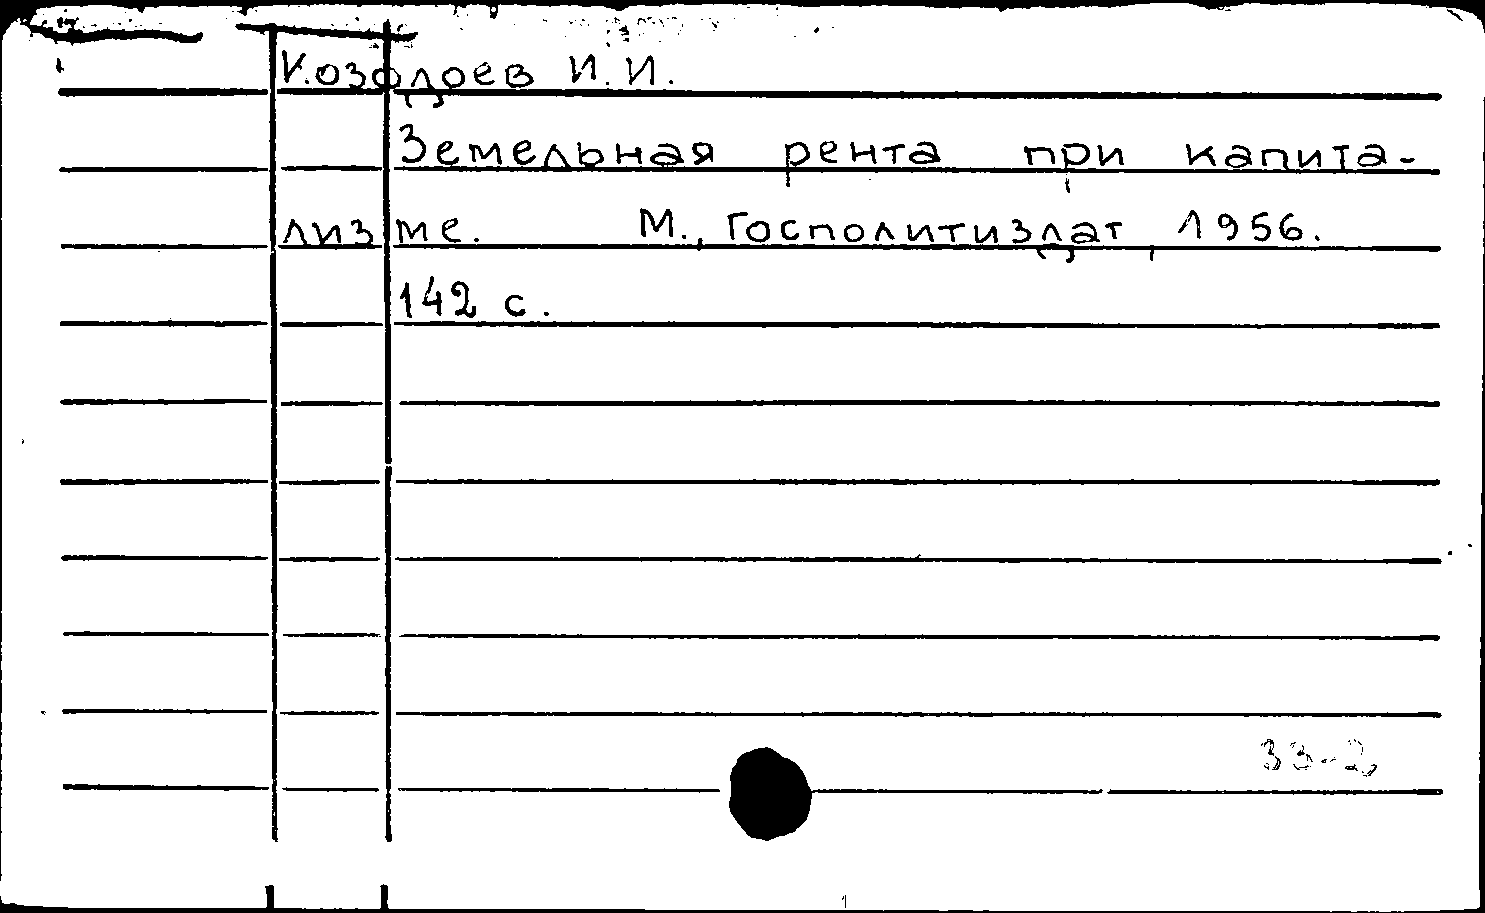 Козодоев И.И.
Земельная рента при капита-
лизме. М., Госполитиздат, 1956.
142 с.
33-2
1